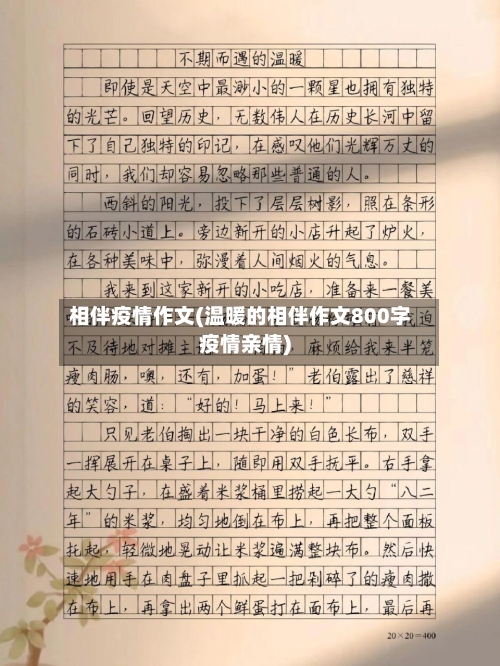 不期而遇的温暖
即使是天空中最渺小的一颗星也拥有独特
的光芒。回望历史，无数伟人在历史长河中留
下了自己独特的印记，在感叹他们光辉万丈的
同时，我们却容易忽略那些普通的人。
西斜的阳光，投下了层层树影，照在条形
的石砖小道上。旁边新开的小店升起了炉火，
在各种美味中，弥漫着人间烟火的气息。
我来到这家新开的小吃店，准备来一餐美
相伴疫情作文(温暖的相伴作文800字
疫情亲情)
迫
不及待地对摊主
麻烦给我来半笼
瘦肉肠，噢，还有，加蛋！”老伯露出了慈祥
的笑容，道：“好的！马上来！”
只见老伯掏出一块干净的白色长布，双手
一挥展开在桌子上，随即用双手抚平。右手拿
起大勺子，在盛着米浆桶里捞起一大勺“八二
年”的米浆，均匀地倒在布上，再把整个面板
托起，轻微地晃动让米浆遍满整块布。然后快
速地用手在肉盘子里抓起一把剁碎了的瘦肉撒
在布上，再拿出两个鲜蛋打在面布上，最后再
20×20=400